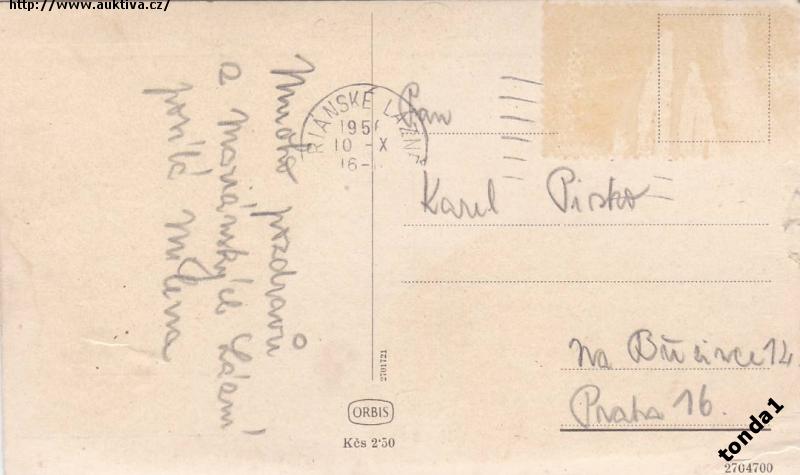 http://www.auktiva.cz/
Mnoho pozdravů
z Mariánských Lázní
posílá Milena
RIÁNSKÉ LÁZNĚ
1956
10 -X
16-
Pan
Karel Pisko
Na 14.
Praha 16.
2701721
ORBIS
Kčs 2·50
tonda1
2704700